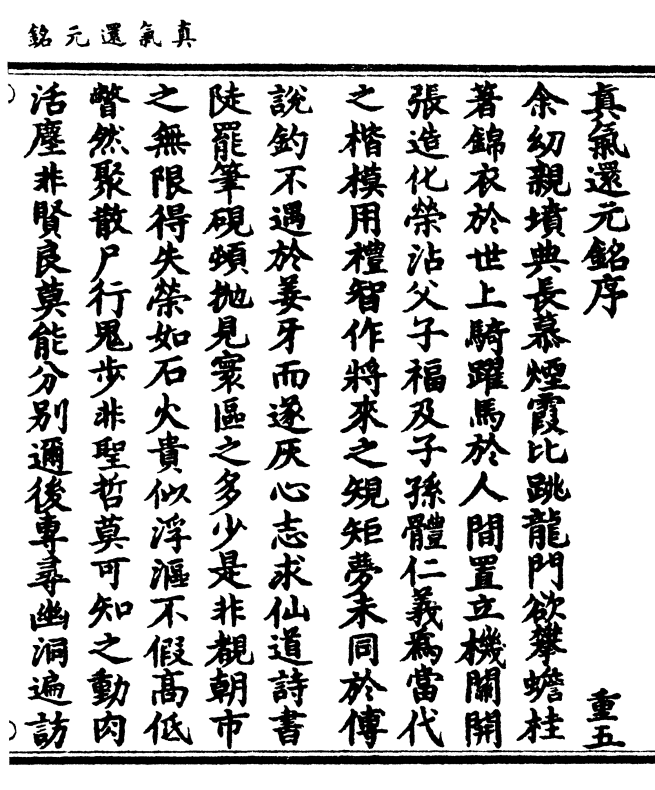 真氣還元銘
真氣還元銘序
重五
余幼親墳典長慕煙霞比跳龍門欲攀蟾桂
著錦衣於世上騎躍馬於人間置立機關開
張造化榮沾父子福及子孫體仁義爲當代
之楷模用禮智作將來之規矩夢未同於傅
說釣不遇於姜牙而遂灰心志求仙道詩書
陡罷筆硯頓拋見寰區之多少是非覩朝市
之無限得失榮如石火貴似浮漚不假高低
瞥然聚散尸行鬼步非聖哲莫可知之動肉
活塵非賢良莫能分別邇後專尋幽洞遍訪